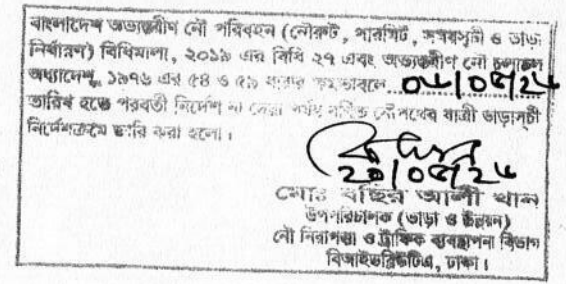 বাংলাদেশ অভ্যন্তরীণ নৌ পরিবহন (নৌরুট, পারমিট, সময়সূচী ও ভাড়া
নির্ধারন) বিধিমালা, ২০১৯ এর বিধি ২৭ এবং অভ্যন্তরীণ নৌ চলাচল
অধ্যাদেশ, ১৯৭৬ এর ৫৪ ও ৫৯ ধারার ক্ষমতাবলে
তারিখ হতে পরবর্তী নির্দেশ না দেয়া পর্যন্ত নৌপথের যাত্রী ভাড়াসূচী
নির্দেশক্রমে জারি করা হলো।
মোঃ বছির আলী খান
উপপরিচালক (ভাড়া ও উন্নয়ন)
নৌ নিরাপত্তা ও ট্রাফিক ব্যবস্থাপনা বিভাগ
বিআইডব্লিউটিএ, ঢাকা।